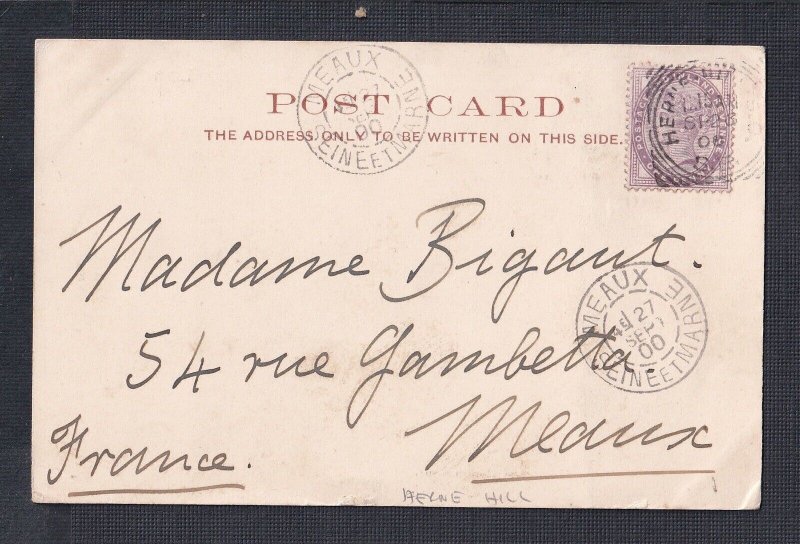 POST CARD
THE ADDRESS ONLY TO BE WRITTEN ON THIS SIDE.
MEAUX
SEINE ET MARNE
00
POSTAGE
HERNE
SP
Madame Bigaut.
54 rue Gambetta.
Meaux
France.
MEAUX
27
SEPT
00
SEINE ET MARNE
HERNE HILL